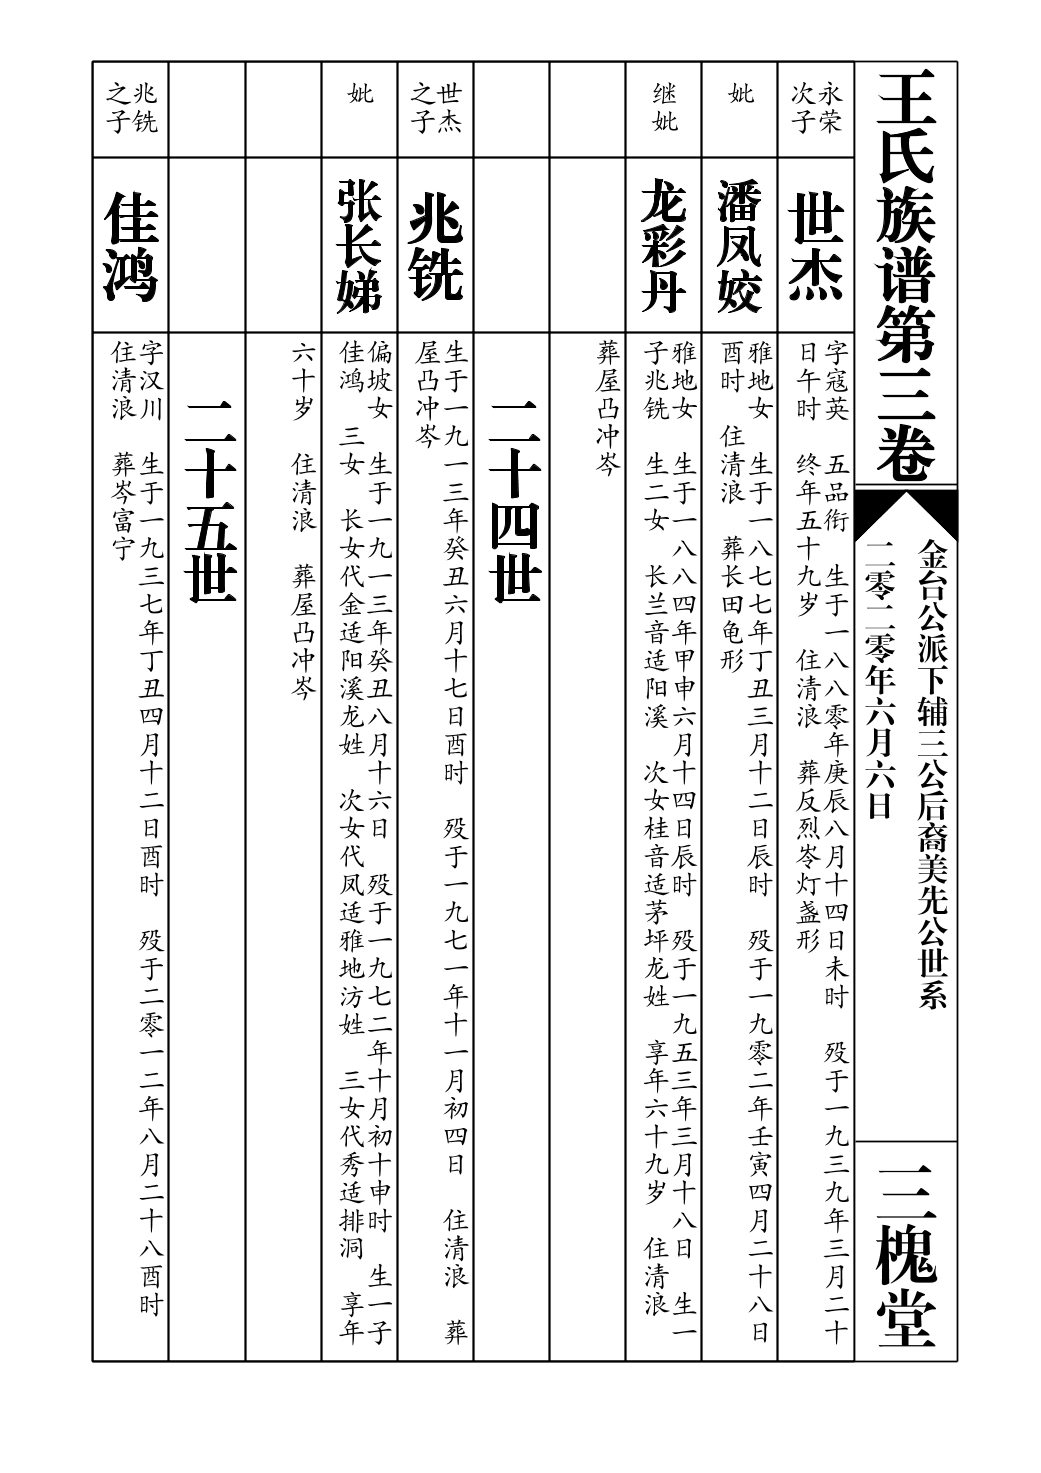 王氏族谱第三卷
金台公派下辅三公后裔美先公世系
二零二零年六月六日
三槐堂
永荣
次子
世杰
字寇英　五品衔　生于一八八零年庚辰八月十四日未时　殁于一九三九年三月二十
日午时　终年五十九岁　住清浪　葬反烈岑灯盏形
妣
潘凤姣
雅地女　生于一八七七年丁丑三月十二日辰时　殁于一九零二年壬寅四月二十八日
酉时　住清浪　葬长田龟形
继
妣
龙彩丹
雅地女　生于一八八四年甲申六月十四日辰时　殁于一九五三年三月十八日　生一
子兆铣　生二女　长兰音适阳溪　次女桂音适茅坪龙姓　享年六十九岁　住清浪
葬屋凸冲岑
二十四世
世杰
之子
兆铣
生于一九一三年癸丑六月十七日酉时　殁于一九七一年十一月初四日　住清浪　葬
屋凸冲岑
妣
张长娣
偏坡女　生于一九一三年癸丑八月十六日　殁于一九七二年十月初十申时　生一子
佳鸿　三女　长女代金适阳溪龙姓　次女代凤适雅地汸姓　三女代秀适排洞　享年
六十岁　住清浪　葬屋凸冲岑
二十五世
兆铣
之子
佳鸿
字汉川　生于一九三七年丁丑四月十二日酉时　殁于二零一二年八月二十八酉时
住清浪　葬岑富宁